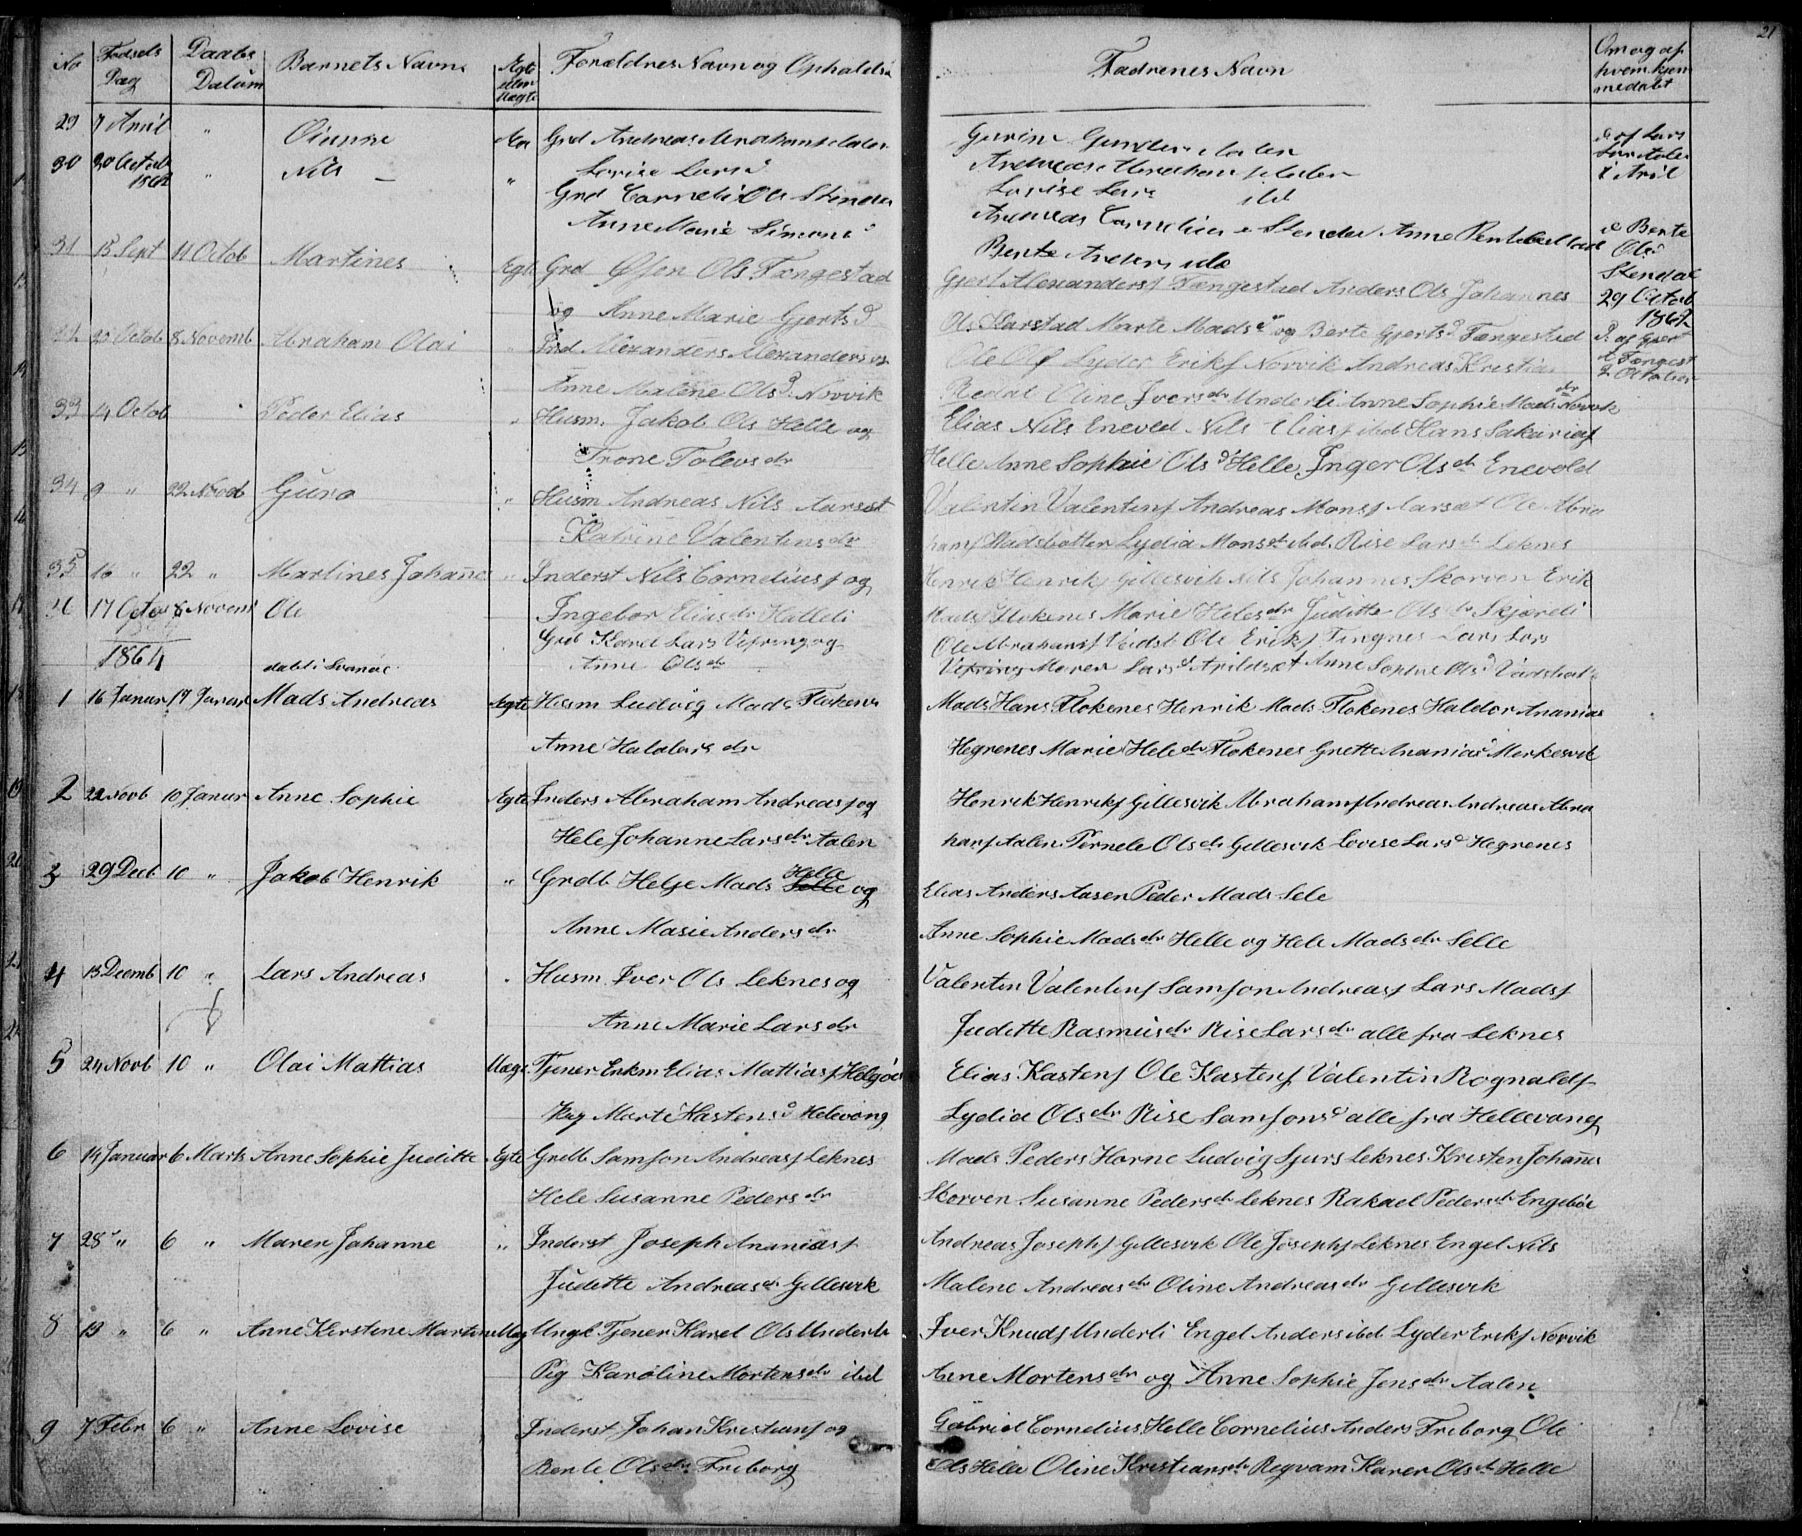 21
No Fødsels Dag Daabs Datum Barnets Navn Ægte eller Uægte Forældres Navn og Ophalds Fadrenes Navn Om og af hvem hjemmedøbt
29 7 April " Grd Andreas Abrahams Aalen Gurine Gunders Aalen af Lars
Lovise Lars d Andreas Abrahams Aalen
30 30 Octob 1862 " Nils " Grd Corneli Ols Stendal Lovise Lars ibd 8 April
Anne Marie Simons d Andreas Cornelius Stendal Anne Bente
Bente Anders Ols Stendal 29 Octob 1862
31 13 Sept 11 Octob Martines Ægte Grd Ols Fængestad Gjert Alexanders Fængestad Anders Ols Johannes
og Anne Marie Gjerts d Ols Harstad Marte Mads d og Berte Gjerts d Fængestad
32 20 Octob 8 Novemb Abraham Olai " Alexanders Alexanders og Ole Ols Lyder Eriks Norvik Andreas Kristian
Anne Malene Ols d Norvik Redal Oline Ivers dr Underli Anne Sophie Mads dr Norvik
33 4 Octob Peder Elias " Husm. Jakob Ols Helle og Elias Nils Eneved Nils Elias ibd Hans Sakarias
Trone Tolevs dr Helle Anne Sophie Ols d Helle Inger Ols dr Enevold
34 9 " 22 Novb Guro " Husm Andreas Nils Aarset Valentin Valentins Andreas Mons Aarset Ole Abra
Katrine Valentens dr hams Stadsbotten Lydia Mons dr ibd. Rise Lars dr Leknes
35 16 " 22 " Martines Johannes " Inderst Nils Cornelius og Henrik Henriks Gillesvik Nils Johannes Skorven Erik
Ingebor Elias dr Halleli Mads Flokenes Marie Heles dr Juditte Ols dr Skjæreli
36 17 Octob 8 Novemb Ole Grd Karel Lars Vefring og Ole Abrahams Vedst Ole Eriks Tingnes Lars Lars
1864 døbt i Svanøe Anne Ols dr Vefring Maren Lars d Arildset Anne Sophie Ols d
1 16 Januar 17 Januar Mads Andreas Ægte Husm Ludvig Mads Flokenes Mads Hans Flokenes Henrik Mads Flokenes Haldor Ananias
Anne Haldors dr Hegrenes Marie Hele dr Flokenes Grette Ananias d Merkesvik
2 22 Novb 10 Januar Anne Sophie Ægte Inders Abraham Andreas og Henrik Henriks Gillesvik Abraham Andreas Andreas Abra
Hele Johanne Lars dr Aalen hams Aalen Pernele Ols dr Gillesvik Lovise Lars d Hegrenes
3 29 Decb 10 " Jakob Henrik " Grdb Helge Mads Selle Helle og Elias Anders Aasen Peder Mads Sele
Anne Marie Anders dr Anne Sophie Mads dr Helle og Hele Mads dr Selle
4 13 Decemb 10 " Lars Andreas " Husm. Iver Ols Leknes og Valentin Valentins Samson Andreas Lars Mads
Anne Marie Lars dr Juditte Rasmus dr Rise Lars dr alle fra Leknes
5 24 Novb 10 " Olai Mattias Uægt Tjener Enkm Elias Mattias Helgøe Elias Kastens Ole Kastens Valentin Rognalds
Pig Marte Kastens d Helevang Lydia Ols dr Rise Samsons d alle fra Hellevang
6 14 Januar 6 Marts Anne Sophie Juditte Ægte Grdb Samson Andreas Leknes Mads Peders Horne Ludvig Sjurs Leknes Kristen Johannes
Hele Susanne Peders dr Skorven Susanne Peders dr Leknes Rakael Peders dr Engebøe
7 28 " 6 " Maren Johanne " Inderst Joseph Ananias Andreas Josephs Gillesvik Ole Josephs Leknes Engel Nils
Juditte Andreas dr Gillesvik Malene Andreas dr Oline Andreas dr Gillesvik
8 13 " 6 " Anne Kerstine Martine Uæg Ungk Tjener Karel Ols Underli Iver Knuds Underli Engel Anders ibd Lyder Eriks Norvik
Pig Karoline Mortens dr ibd Anne Mortens dr og Anne Sophie Jens dr Aalen
9 7 Febr 6 " Anne Lovise Inderst Johan Kristians og Gabriel Cornelius Helle Cornelius Anders Friborg Ole
Bente Ols dr Friborg Ols Helle Oline Kristians dr Regvam Karen Ols dr Helle